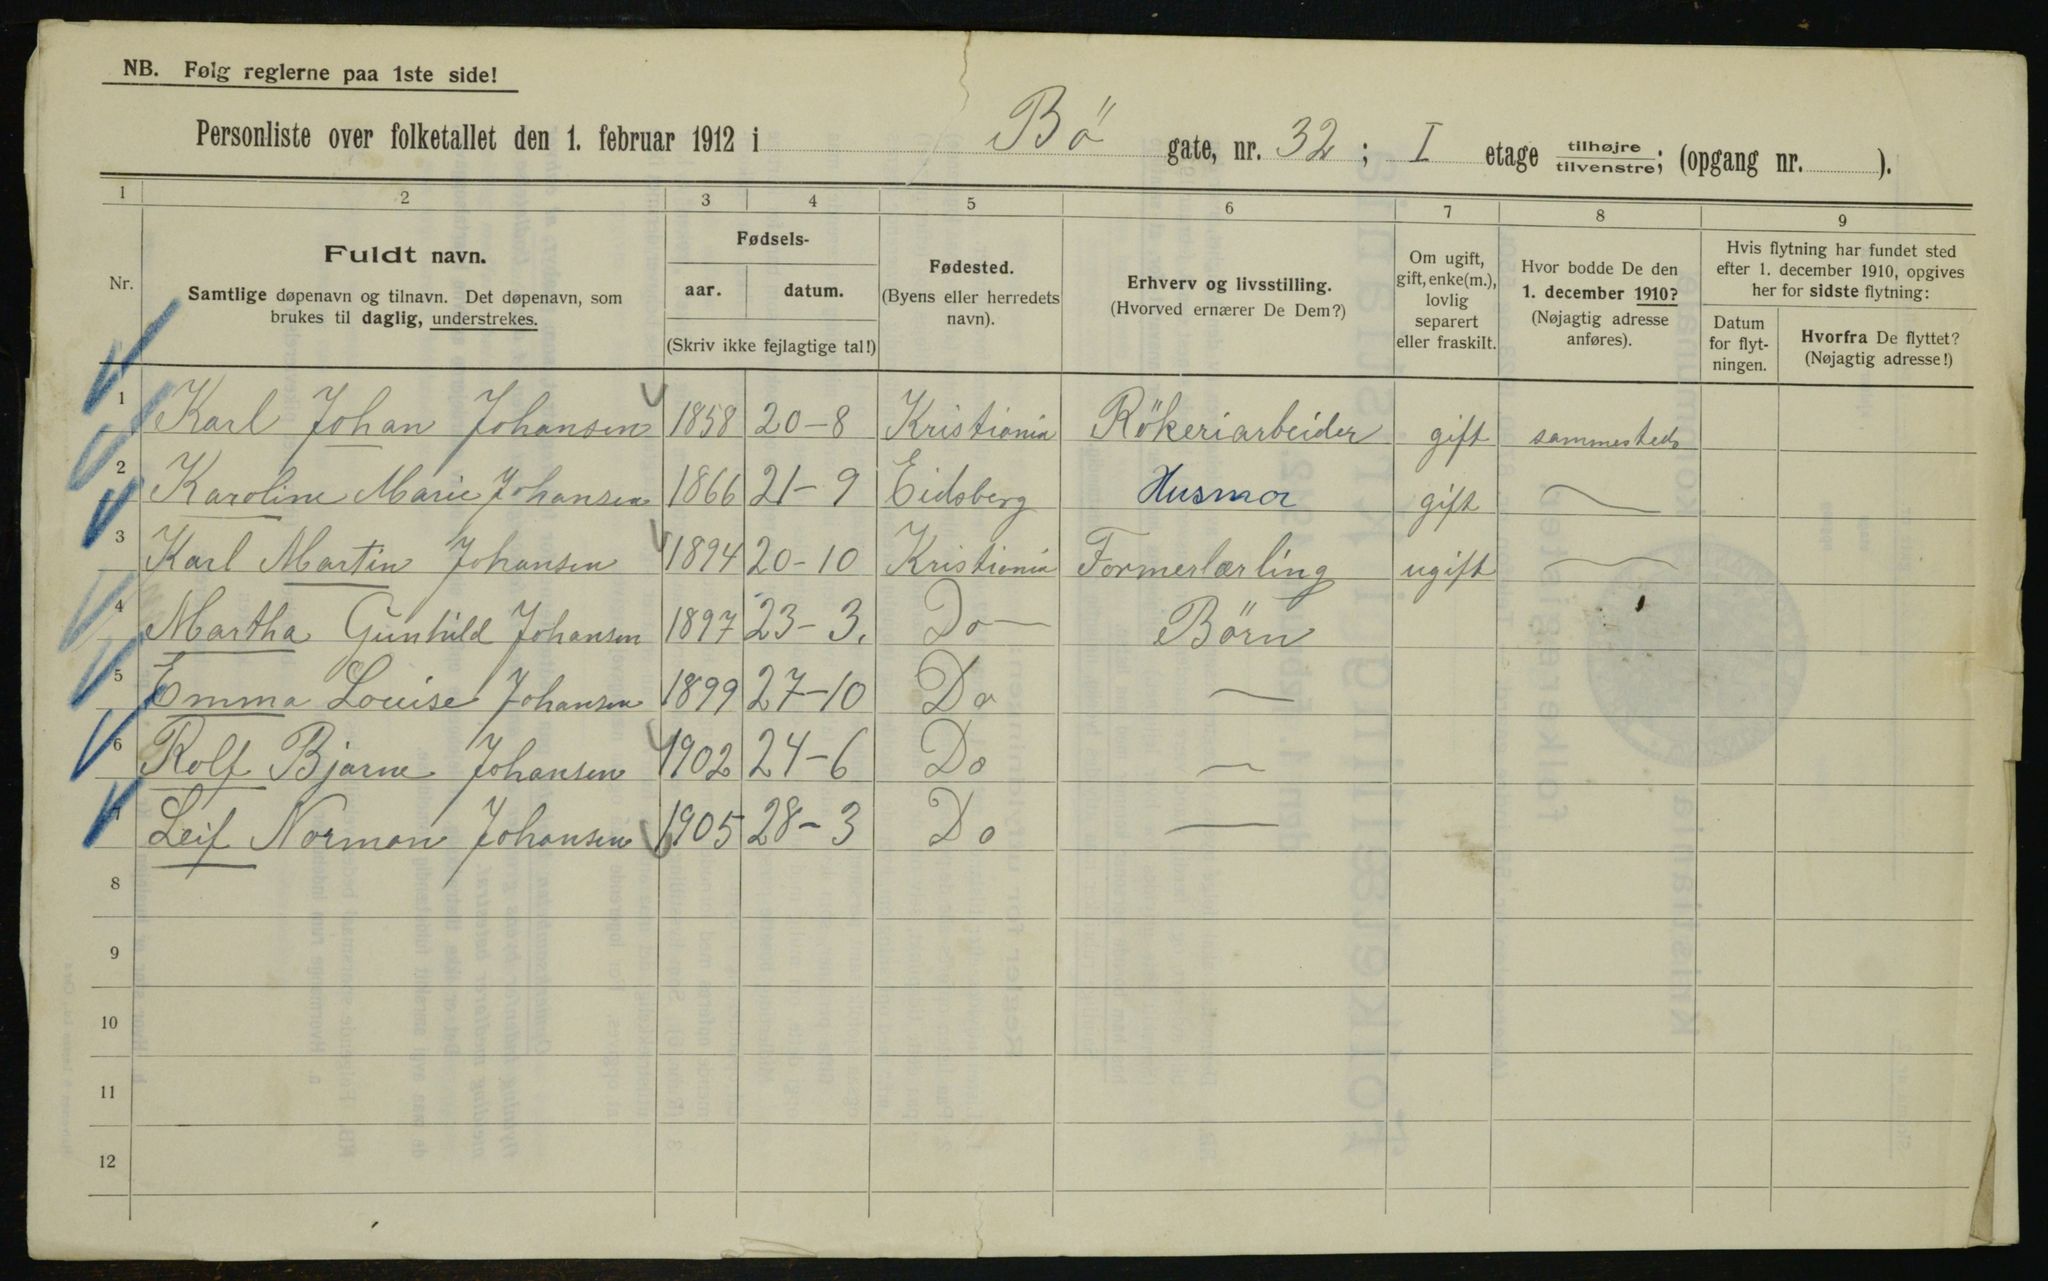 NB. Følg reglerne paa 1ste side!
Personliste over folketallet den 1. februar 1912 i Bö gate, nr. 32 ; I etage tilhøjre/tilvenstre; (opgang nr. ).
1 2 3 4 5 6 7 8 9
Nr.
Fuldt navn.
Samtlige døpenavn og tilnavn. Det døpenavn, som
brukes til daglig, understrekes.
Fødsels-
aar. datum.
(Skriv ikke fejlagtige tal!)
Fødested.
(Byens eller herredets
navn).
Erhverv og livsstilling.
(Hvorved ernærer De Dem?)
Om ugift,
gift, enke(m.),
lovlig
separert
eller fraskilt.
Hvor bodde De den
1. december 1910?
(Nøjagtig adresse
anføres).
Hvis flytning har fundet sted
efter 1. december 1910, opgives
her for sidste flytning:
Datum
for flyt-
ningen.
Hvorfra De flyttet?
(Nøjagtig adresse!)
1 Karl Johan Johansen 1858 20-8 Kristiania Rökeriarbeider gift sammesteds
2 Karoline Marie Johansen 1866 21-9 Eidsberg Husmor gift —
3 Karl Martin Johansen 1894 20-10 Kristiania Formerlærling ugift —
4 Martha Gunhild Johansen 1897 23-3. Do — Börn
5 Emma Louise Johansen 1899 27-10 Do —
6 Rolf Bjarne Johansen 1902 24-6 Do —
7 Leif Norman Johansen 1905 28-3 Do —
8
9
10
11
12